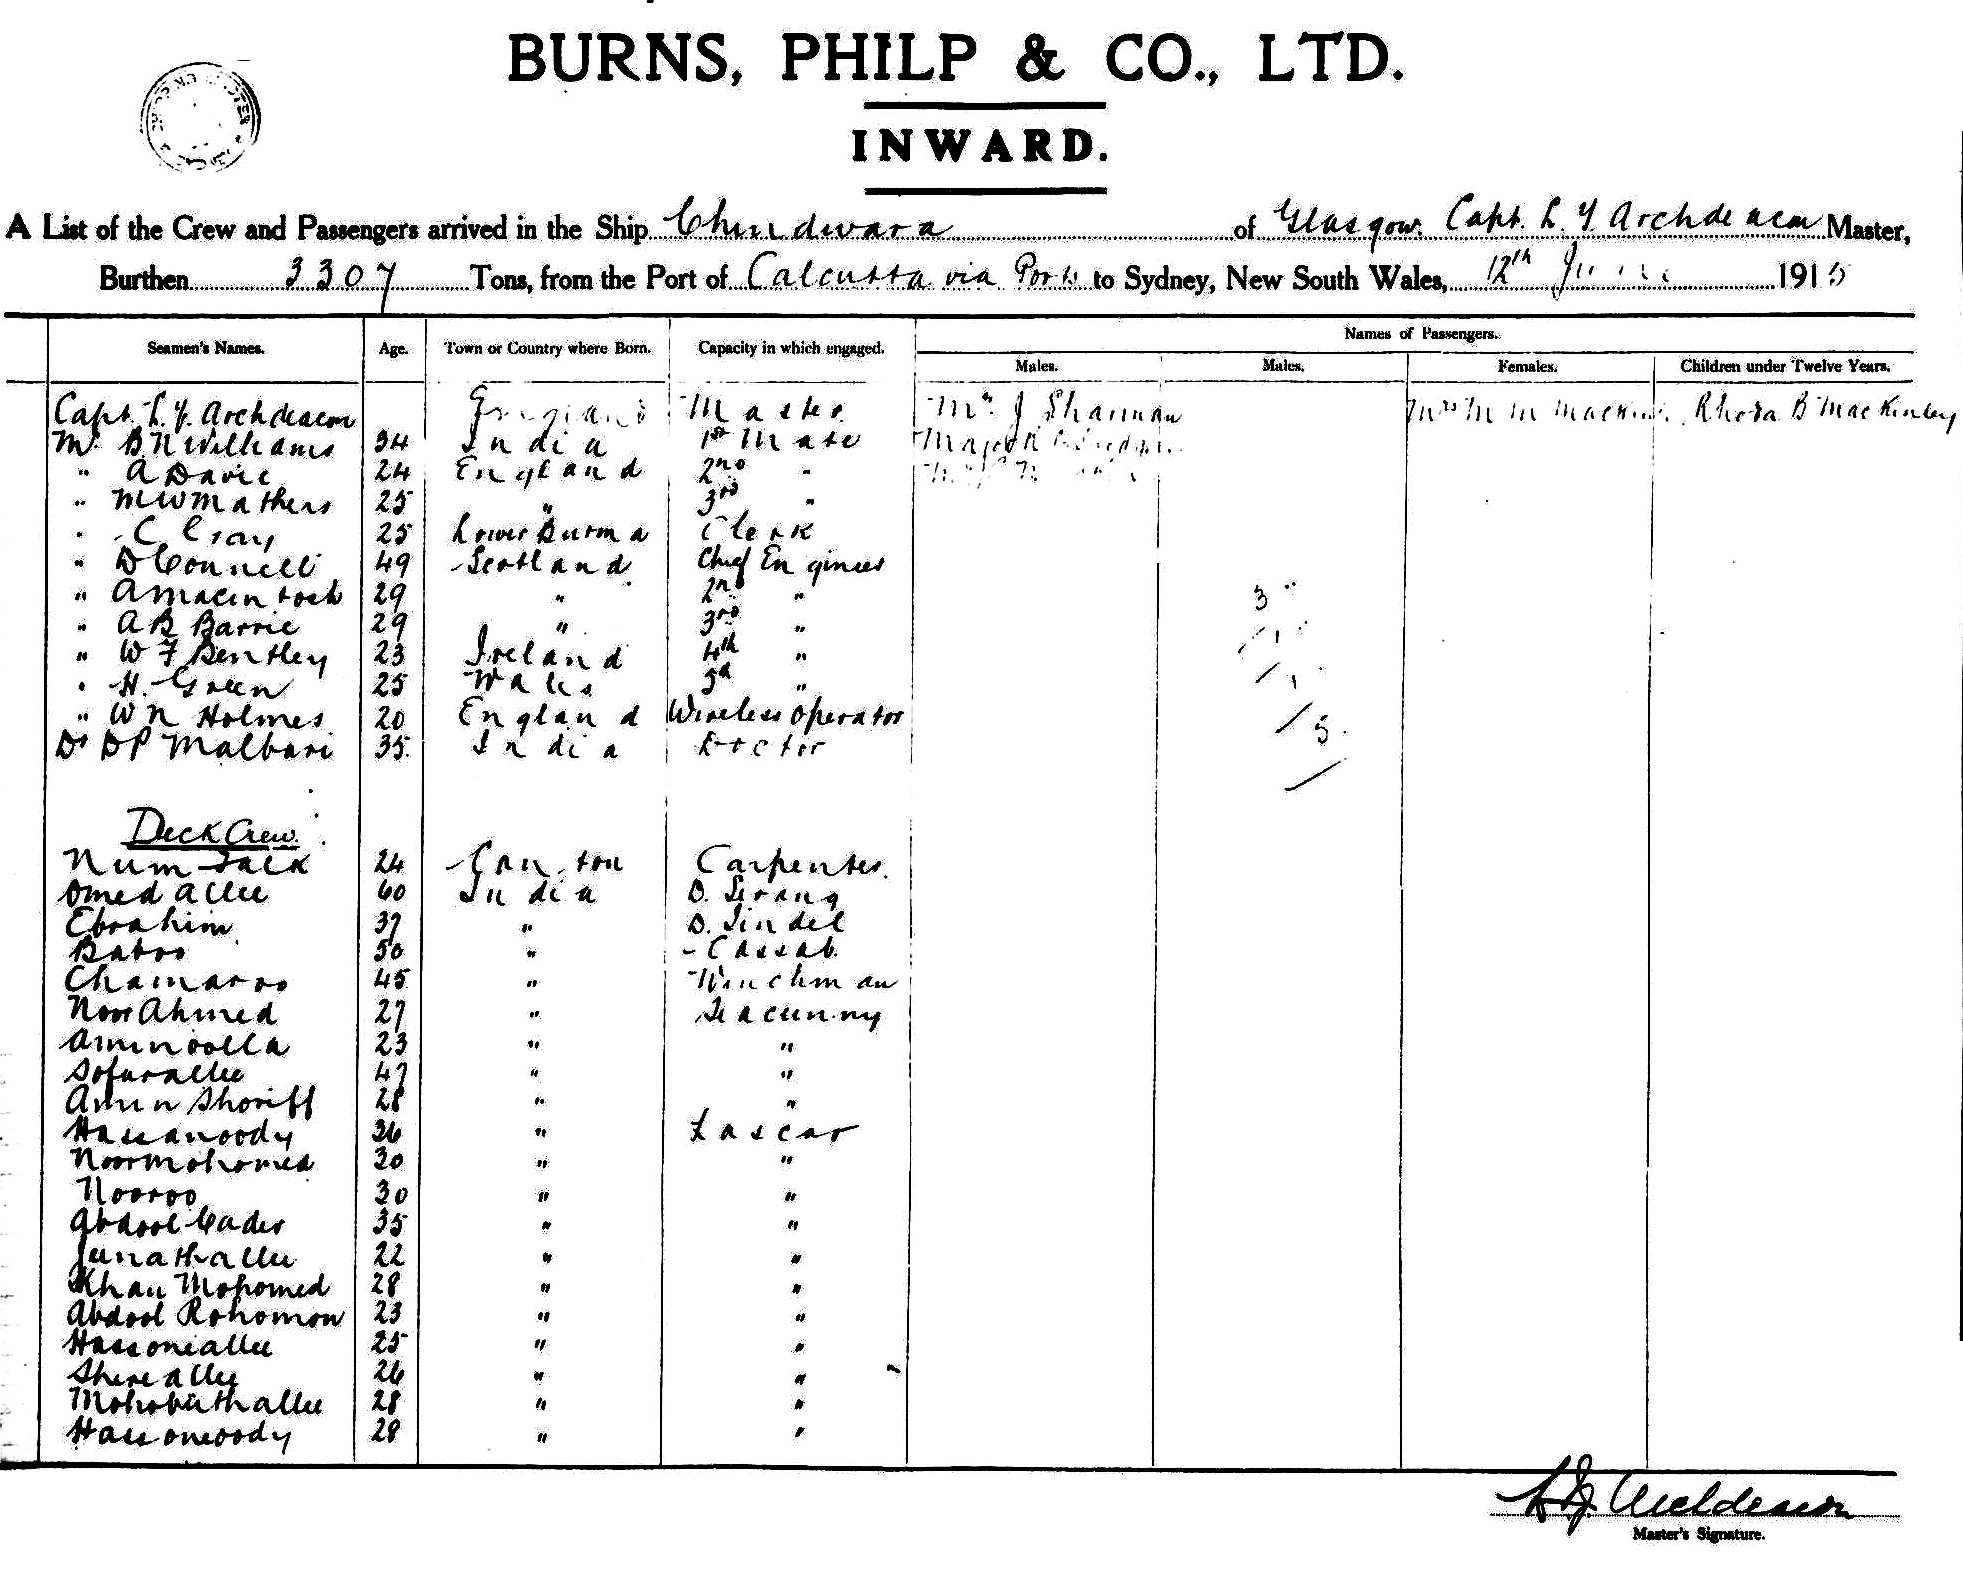 BURNS, PHILP & CO., LTD.
INWARD.
A List of the Crew and Passengers arrived in the Ship Chindwara of Glasgow. Capt. L. Y Archdeacon Master,
Burthen 3307 Tons, from the Port of Calcutta via Ports to Sydney, New South Wales, 12th June 1915
Names of Passengers.
Seamen's Names. Age. Town or Country where Born. Capacity in which engaged. Males. Males. Females. Children under Twelve Years.
Capt. L. Y. Archdeacon England Master Mr. J Shannan Mrs M M Rhoda B MacKinley
Mr B N Williams 34 India 1st Mate Major
" A Davie 24 England 2nd "
" M W Mathers 25 " 3rd "
" C Gray 25 Lower Burma Clerk
" D Connell 49 Scotland Chief Engineer
" A Macintosh 29 " 2nd " 3 "
" A B Barrie 29 " 3rd "
" W F Bentley 23 Ireland 4th "
" H. Green 25 Wales 5th "
" W N Holmes 20 England Wireless Operator 5
Dr D P Malbari 35 India Doctor
Deck Crew.
Num Jack 24 Canton Carpenter.
Omed Allee 60 India D. Serang
Ebrahim 37 " D. Tindel
Baboo 50 " Cassab
Chamaroo 45 " Winchman
Noor Ahmed 27 " Seacunny
Aminoolla 23 " "
Sofurallee 47 " "
Amin Shoriff 28 " "
Hassanoody 36 " Lascar
Noormohomed 30 " "
Nooroo 30 " "
Abdool Cader 35 " "
Junathallee 22 " "
Khan Mohomed 28 " "
Abdool Rohomon 23 " "
Hassoneallee 25 " "
Shereallee 26 " "
Mohobuthallee 28 " "
Hassoneoody 28 " "
L Y. Archdeacon
Master's Signature.